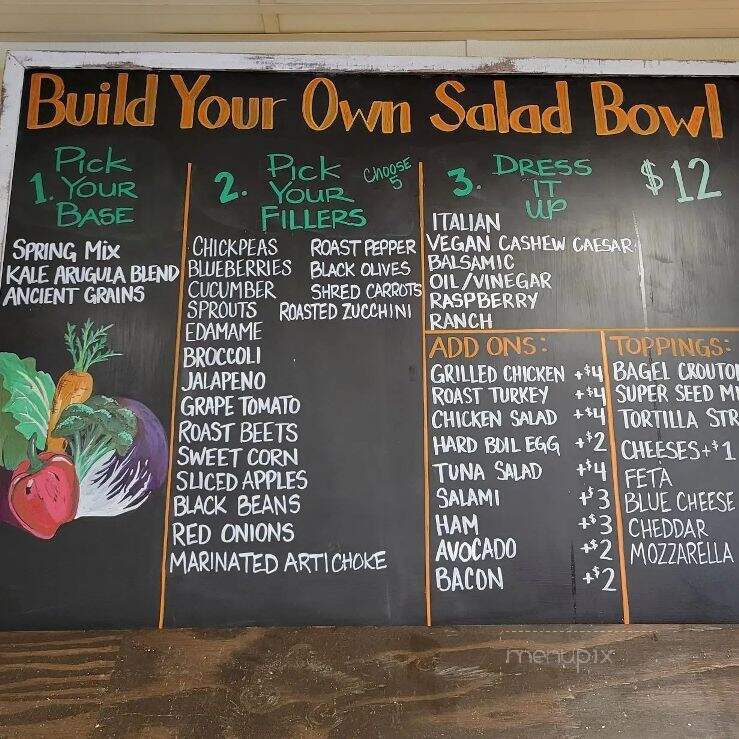 Build Your Own Salad Bowl
1. Pick
YOUR
BASE
SPRING MIX
KALE ARUGULA BLEND
ANCIENT GRAINS
2. Pick
YOUR
FILLERS
CHOOSE
5
CHICKPEAS
BLUEBERRIES
CUCUMBER
SPROUTS
EDAMAME
BROCCOLI
JALAPENO
GRAPE TOMATO
ROAST BEETS
SWEET CORN
SLICED APPLES
BLACK BEANS
RED ONIONS
MARINATED ARTICHOKE
ROAST PEPPER
BLACK OLIVES
SHRED CARROTS
ROASTED ZUCCHINI
3. DRESS
IT
UP
$12
ITALIAN
VEGAN CASHEW CAESAR
BALSAMIC
OIL/VINEGAR
RASPBERRY
RANCH
ADD ONS:
GRILLED CHICKEN +$4
ROAST TURKEY +$4
CHICKEN SALAD +$4
HARD BOIL EGG +$2
TUNA SALAD +$4
SALAMI +$3
HAM +$3
AVOCADO +$2
BACON +$2
TOPPINGS:
BAGEL CROUTO
SUPER SEED MI
TORTILLA STR
CHEESES +$1
FETA
BLUE CHEESE
CHEDDAR
MOZZARELLA
menupix